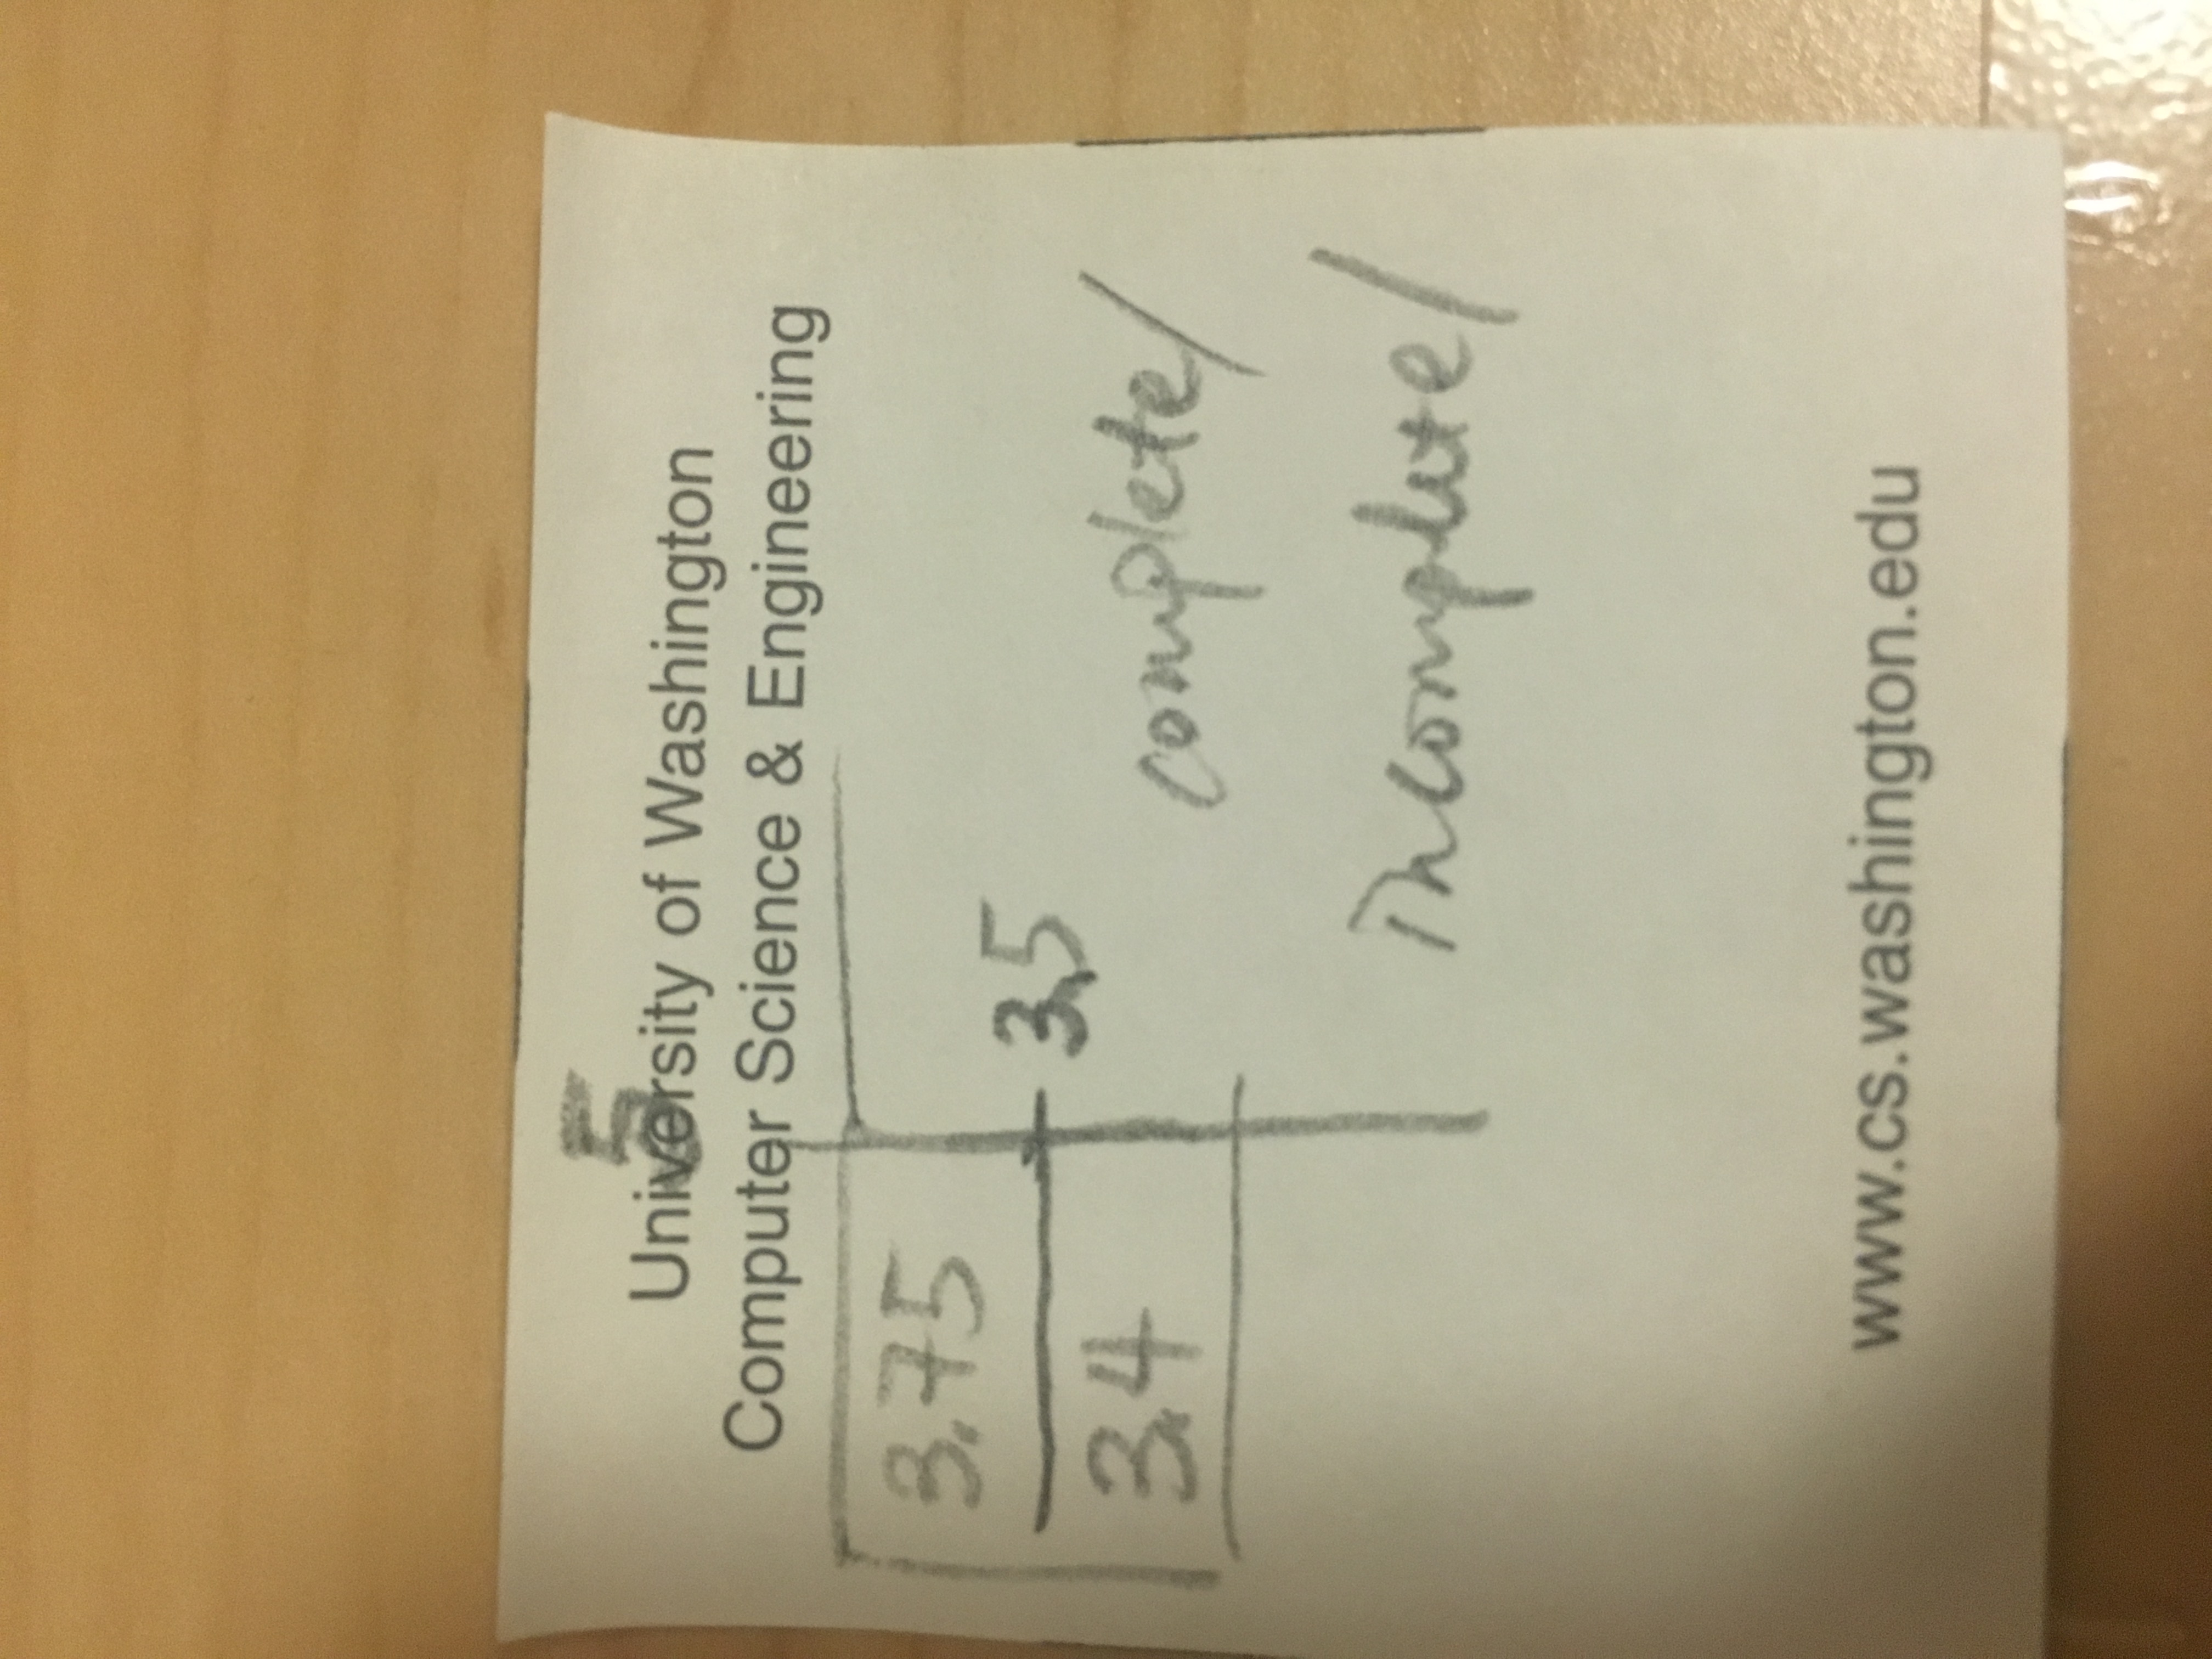 5
University of Washington
Computer Science & Engineering
3.75
3.5
3.4
complete/
incomplete/
www.cs.washington.edu